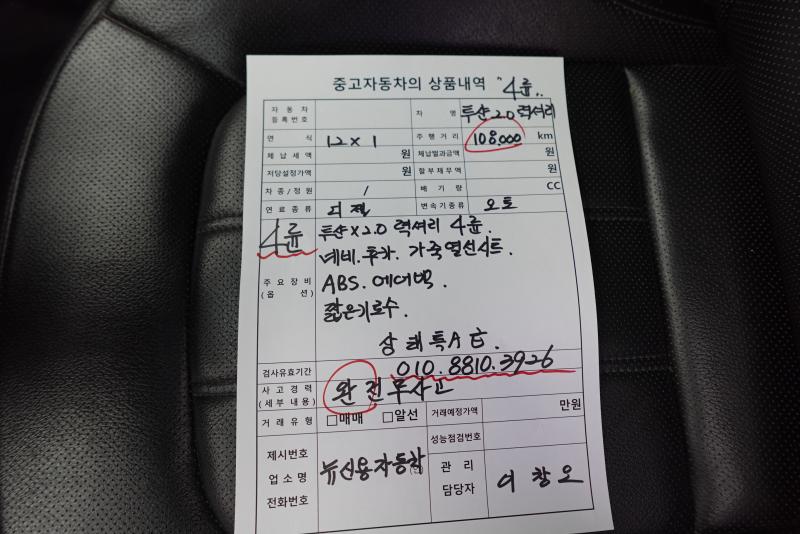 중고자동차의 상품내역 "4륜..
자동차등록번호 차명 투산2.0럭셔리
연식 12×1 주행거리 108,000 km
체납세액 원 체납벌과금액 원
저당설정가액 원 할부채무액 원
차종/정원 / 배기량 CC
연료종류 디젤 변속기종류 오토
4륜 투산×2.0 럭셔리 4륜.
네비.후카. 가죽열선시트.
주요장비 ABS. 에어백.
(옵션)
짧은키로수.
상태특A급.
검사유효기간 010.8810.3926
사고경력 완전무사고
(세부내용)
거래유형 □매매 □알선 거래예정가액 만원
제시번호 성능점검번호
업소명 뉴신용자동차 관리
전화번호 담당자 이창오